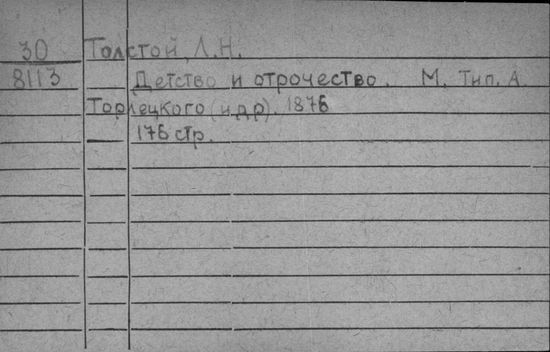 30 Толстой, Л.Н.
8113 Детство и отрочество. М. Тип. А.
Торлецкого (и др). 1876
176 стр.